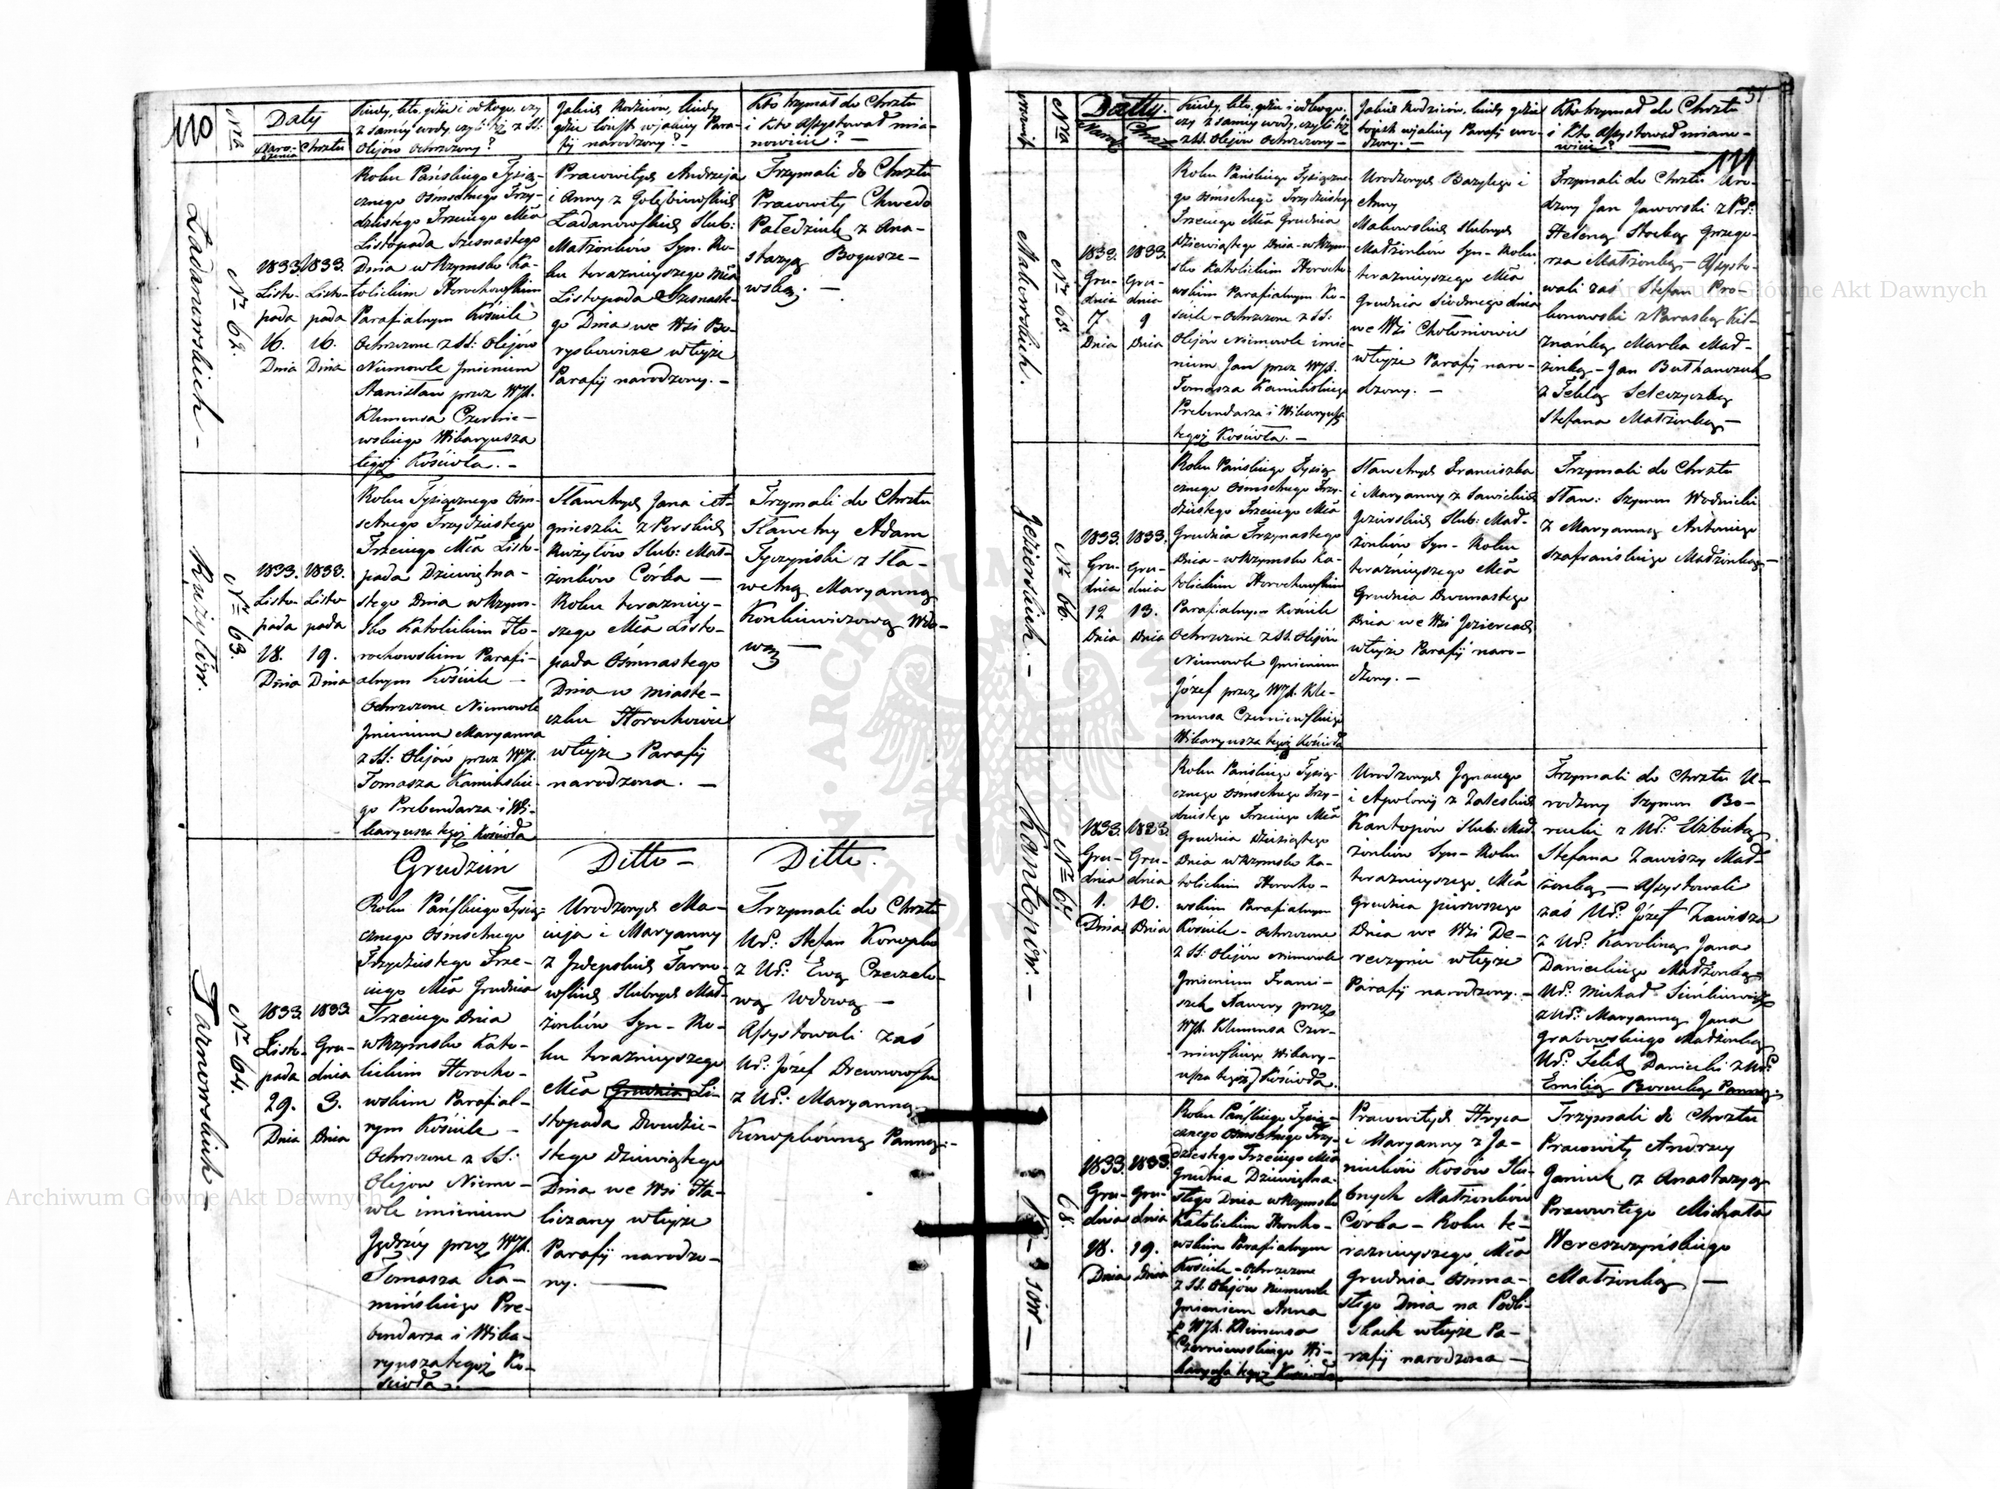 110
Nra
Daty
Naro-
dzenia
Chrztu
Kiedy, kto, gdzie i od kogo, czy
z saméy wody, czyli też z SS:
Olejów Ochrzczony?
Jakich Rodziców, kiedy
gdzie i w jakiey Para-
fij narodzony? -
Kto trzymał do Chrztu
i Kto Assystował mia-
nowicie? -
Ładanowskich -
Nr 62.
1833.
Listo-
pada
16.
Dnia
1833.
Listo-
pada
16.
Dnia
Roku Pańskiego Tysią-
cznego Ośmsetnego Trzy-
dziestego Trzeciego Mca
Listopada Szesnastego
Dnia w Rzymsko Ka-
tolickim Horochowskim
Parafialnym Kościele
Ochrzczone z SS: Olejów
Niemowle Jmieniem
Stanisław przez WJX.
Klemensa Czernie-
wskiego Wikaryusza
tegoż Kościoła. -
Prawowitych Andrzeja
i Anny z Gołębiowskich
Ładanowskich Slub:
Małżonków Syn - Ro-
ku teraznieyszego Mca
Listopada Szesnaste-
go Dnia we Wsi Bo-
ryskowicze wteyże
Parafij narodzony. -
Trzymali do Chrztu
Prawowity Chwedo
Paledziuk z Ana-
stazyą Bogusze-
wską. -
Rużytów.
Nr 63.
1833.
Listo-
pada
18.
Dnia
1833.
Listo-
pada
19.
Dnia
Roku Tysiącznego Ośm-
setnego Trzydziestego
Trzeciego Mca Listo-
pada Dziewiętna-
stego Dnia w Rzym-
sko Katolickim Ho-
rochowskim Parafi-
alnym Kościele -
Ochrzczone Niemowle
Jmieniem Maryanna
z SS: Olejów przez WJX.
Tomasza Kamińskie-
go Prebendarza i Wi-
karyusza tegoż Kościoła
Sławetnych Jana i A-
gnieszki z Perskich
Rużytów Slub: Mał-
żonków Córka -
Roku terazniey-
szego Mca Listo-
pada Ośmnastego
Dnia w miaste-
czku Horochowie
wteyże Parafij
narodzona. -
Trzymali do Chrztu
Sławetny Adam
Tyczyński z Sła-
wetną Maryanną
Wdo-
wą -
Tarnowskich -
Nr 64.
1833.
Listo-
pada
29.
Dnia
1833.
Gru-
dnia
3.
Dnia
Grudzień
Roku Pańskiego Tysią-
cznego Ośmsetnego
Trzydziestego Trze-
ciego Mca Grudnia
Trzeciego Dnia
w Rzymsko Kato-
lickim Horocho-
wskim Parafial-
nym Kościele -
Ochrzczone z SS:
Olejów Niemo-
wle imieniem
Jędrzéy przez WJX.
Tomasza Ka-
mińskiego Pre-
bendarza i Wika-
ryusza tegoż Ko-
ścioła. -
Ditto -
Urodzonych Ma-
cieja i Maryanny
z Tarno-
wskich Slubnych Mał-
żonków Syn - Ro-
ku teraznieyszego
Mca Grudnia Li-
stopada Dwudzie-
stego Dziewiątego
Dnia we Wsi Ha-
liczany wteyże
Parafij narodzo-
ny. -
Ditto.
Trzymali do Chrztu
Ur: Stefan Konopka
z Ur: Ewą
Wdową -
Assystowali zaś
Ur: Józef Drewnowski
z Ur: Maryanną
Konopkówną Panną -
51
111
Nra
Datty.
Kiedy, kto, gdzie i od kogo,
czy z saméy wody, czyli też
z SS. Olejów Ochrzczony -
Jakich Rodziców, kiedy gdzie
i w jakiey Parafij uro-
dzony. -
Kto trzymał do Chrztu
i Kto Assystował miano-
wicie? -
Makowskich. -
Nr 65.
1833.
Gru-
dnia
7
Dnia
1833.
Gru-
dnia
9
Dnia
Roku Pańskiego Tysiączne-
go Ośmsetnego Trzydziestego
Trzeciego Mca Grudnia
Dziewiątego Dnia - w Rzym-
sko Katolickim Horocho-
wskim Parafialnym Ko-
ściele - Ochrzczone z SS:
Olejów Niemowle imie-
niem Jan przez WJX.
Tomasza Kamińskiego
Prebendarza i Wikaryusza
tegoż Kościoła. -
Urodzonych Bazylego i
Anny
Makowskich Slubnych
Małżonków Syn - Roku
teraznieyszego Mca
Grudnia Siodmego dnia
we Wsi Chołoniowie
wteyże Parafij naro-
dzony. -
Trzymali do Chrztu Uro-
dzony Jan Jaworski z Ur:
Heleną Grzego-
rza Małżonką - Assysto-
wali zaś Stefan Pro-
konowski z Paraską
Marka Mał-
żonką - Jan
z Teklą
Stefana Małżonką -
Jezierskich. -
Nr 66.
1833.
Gru-
dnia
12
Dnia
1833.
Gru-
dnia
13.
Dnia
Roku Pańskiego Tysią-
cznego Ośmsetnego Trzy-
dziestego Trzeciego Mca
Grudnia Trzynastego
Dnia - w Rzymsko Ka-
tolickim Horochowskim
Parafialnym Kościele
Ochrzczone z SS. Olejów
Niemowle Jmieniem
Józef przez WJX. Kle-
mensa Czerniewskiego
Wikaryusza tegoż Kościoła
Sławetnych Franciszka
i Maryanny z Sawickich
Jezierskich Slub: Mał-
żonków Syn - Roku
teraznieyszego Mca
Grudnia Dwunastego
Dnia we Wsi Jeziercach
wteyże Parafij naro-
dzony. -
Trzymali do Chrztu
Sław: Szymon Wodnicki
z Maryanną Antoniego
Szafrańskiego Małżonką -
Kantopów. -
Nr 67.
1833.
Gru-
dnia
1.
Dnia
1833.
Gru-
dnia
10.
Dnia
Roku Pańskiego Tysią-
cznego Ośmsetnego Trzy-
dziestego Trzeciego Mca
Grudnia Dziesiątego
Dnia w Rzymsko Ka-
tolickim Horocho-
wskim Parafialnym
Kościele - Ochrzczone
z SS. Olejów niemowle
Jmieniem Franci-
szek Xawery przez
WJX. Klemensa Czer-
niewskiego Wikary-
usza tegoż Kościoła.
Urodzonych Jgnacego
i Apolonij z Zaleskich
Kantopów Slub: Mał-
żonków Syn - Roku
teraznieyszego Mca
Grudnia pierwszego
Dnia we Wsi De-
reczynie wteyże
Parafij narodzony. -
Trzymali do Chrztu U-
rodzony Szymon Bo-
rucki z Ur: Elżbietą
Stefana Zawiszy Mał-
żonką - Assystowali
zaś Ur: Józef Zawisza
z Ur: Karoliną Jana
Danieckiego Małżonką
Ur: Michał
z Ur: Maryanną Jana
Grabowskiego Małżonką
Ur: Felix Daniecki z Ur:
Emilią Borucką Panną.
68.
1833.
Gru-
dnia
18.
Dnia
1833.
Gru-
dnia
19.
Dnia
Roku Pańskiego Tysią-
cznego Ośmsetnego Trzy-
dziestego Trzeciego Mca
Grudnia Dziewiętna-
stego Dnia w Rzymsko
Katolickim Horocho-
wskim Parafialnym
Kościele - Ochrzczone
z SS. Olejów Niemowle
Jmieniem Anna
p WJX. Klemensa
Czerniewskiego Wi-
karyusza tegoż Kościoła
Prawowitych Hryca
i Maryanny z Ja-
niuków Kosów Slu-
bnych Małżonków
Córka - Roku te-
raznieyszego Mca
Grudnia Ośmna-
stego Dnia na Podli-
skach wteyże Pa-
rafij narodzona -
Trzymali do Chrztu
Prawowity Andrzey
Janiuk z Anastazyą
Prawowitego Michała
Wereszczyńskiego
Małżonką -
Archiwum Główne Akt Dawnych
Archiwum Główne Akt Dawnych